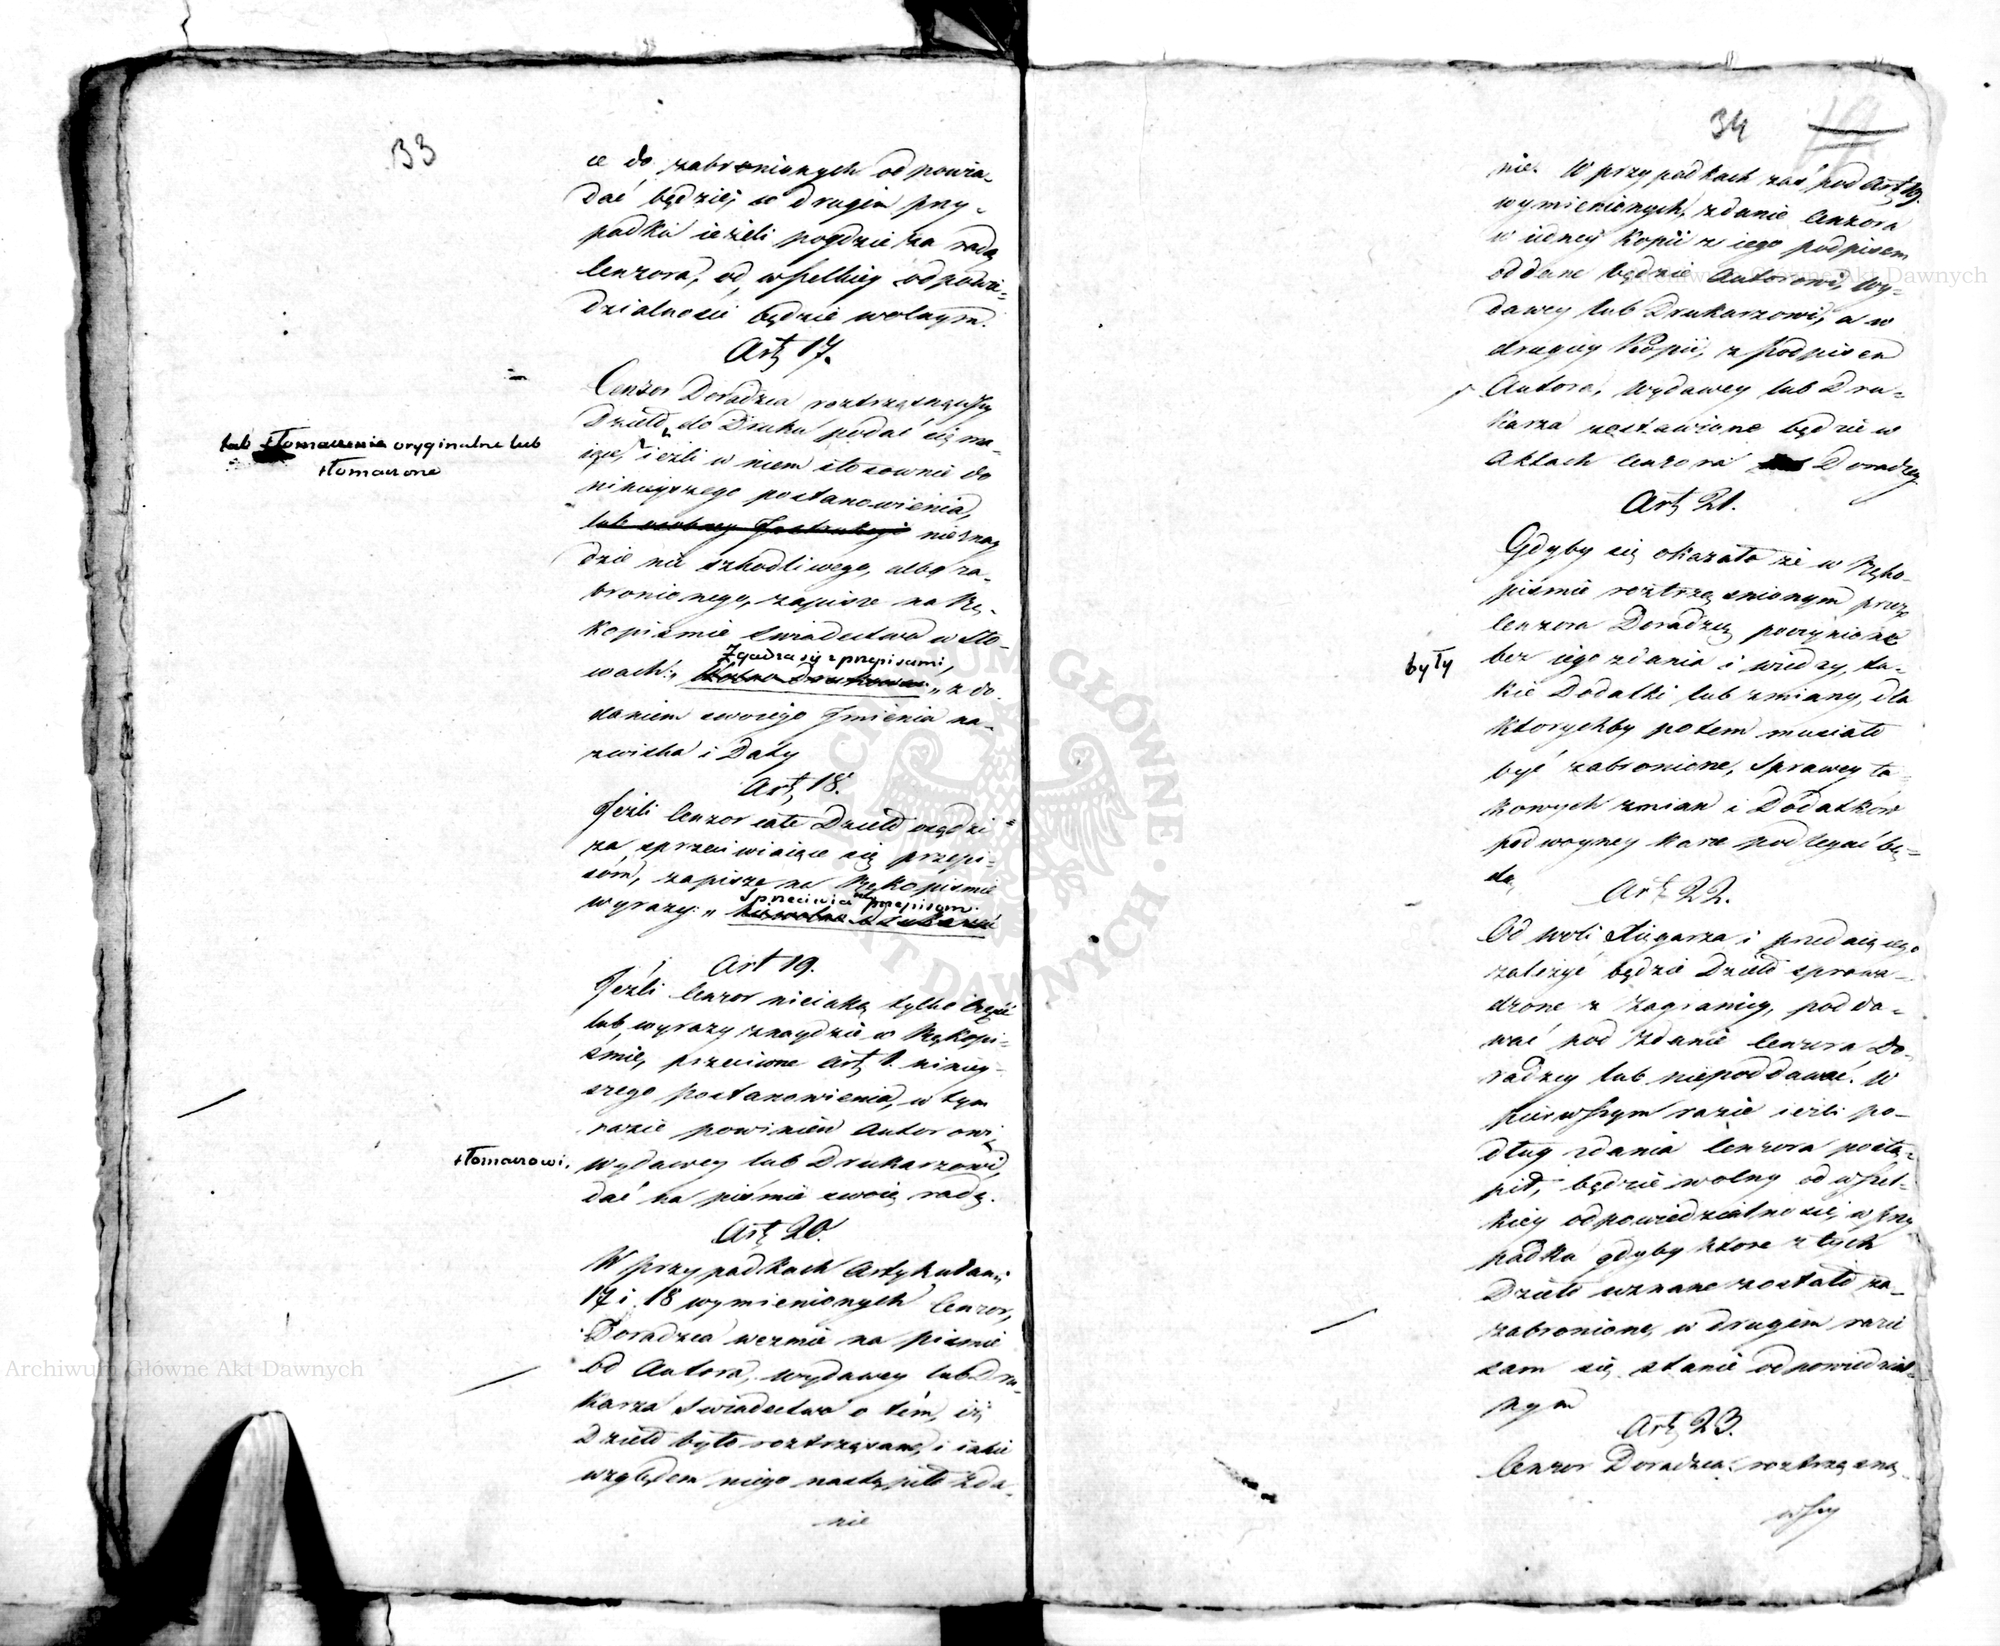 33
ce do zabronionych odpowia-
dać będzie; w drugim przy-
padku ieżeli póydzie za radą
Cenzora, od wszelkiey odpowie-
dzialności będzie wolnym.
Art. 17.
Cenzor Doradzca roztrząsnąwszy
Dzieło do Druku podać się ma-
lub tłomaczenia oryginalne lub
tłomaczone
iące, ieźli w niem stosownie do
ninieyszego postanowienia,
lub osobney Instrukcyi nieznay
dzie nic szkodliwego, albo za-
bronionego, zapisze na Rę-
kopismie swiadectwo w sło-
Zgadza się z przepisami,
wach: „ Wolno Drukować „ z do
daniem swoiego Imienia na-
zwiska i Daty
Art. 18.
Jeźli Cenzor całe Dzieło osądzi
za sprzeciwiaiące się przepi-
sóm, zapisze na Rękopismie
Sprzeciwia się przepisom.
wyrazy: „
Art 19.
Jeźli Cenzor nieiaką tylko część
lub wyrazy znaydzie w Rękopi-
śmie, przeciwne Art. 1. niniey-
szego postanowienia, w tym
razie powinien Autorowi
tłomaczowi, wydawcy lub Drukarzowi,
dać na piśmie swoię radę.
Art. 20.
W przypadkach Artykułami
17 i 18 wymienionych Cenzor,
Doradzca weźmie na pismie
od Autora, wydawcy lub Dru-
karza swiadectwo o tém, iż
Dzieło było roztrząsane, i iakie
względem niego nastąpiło zda-
nie
34
nie. W przypadkach zaś pod Art. 19.
wymienionych, zdanie Cenzora
w iedney Kopii z iego podpisem
oddane będzie Autorowi, Wy-
dawcy lub Drukarzowi, a w
drugiey Kopii, z podpisem
Autora, Wydawcy lub Dru-
karza zostawione będzie w
Aktach Cenzora Doradzcy
Art. 21.
Gdyby się okazało że w Ręko-
piśmie roztrząsnionym przez
Cenzora Doradzcę poczynione
były bez iego zdania i wiedzy, ta-
kie Dodatki lub zmiany, dla
ktorychby potem musiało
być zabronione, Sprawcy ta-
kowych zmian i Dodatków
podwoyney karze podlegać bę-
dą,
Art. 22.
Od woli Xięgarza i przedaiącego
zależyć będzie Dzieło sprowa-
dzone z zagranicy, podda-
wać pod zdanie Cenzora Do-
radzcy lub niepoddawać. W
pierwszym razie ieźli po-
dług zdania Cenzora postą-
pił, będzie wolny od wszel-
kiey odpowiedzialności, w przy
padku gdyby ktore z tych
Dzieło uznane zostało za-
zabronione, w drugim razie
sam się stanie odpowiedzial-
nym
Art. 23.
Cenzor Doradzca, roztrząsną-
wszy
Archiwum Główne Akt Dawnych